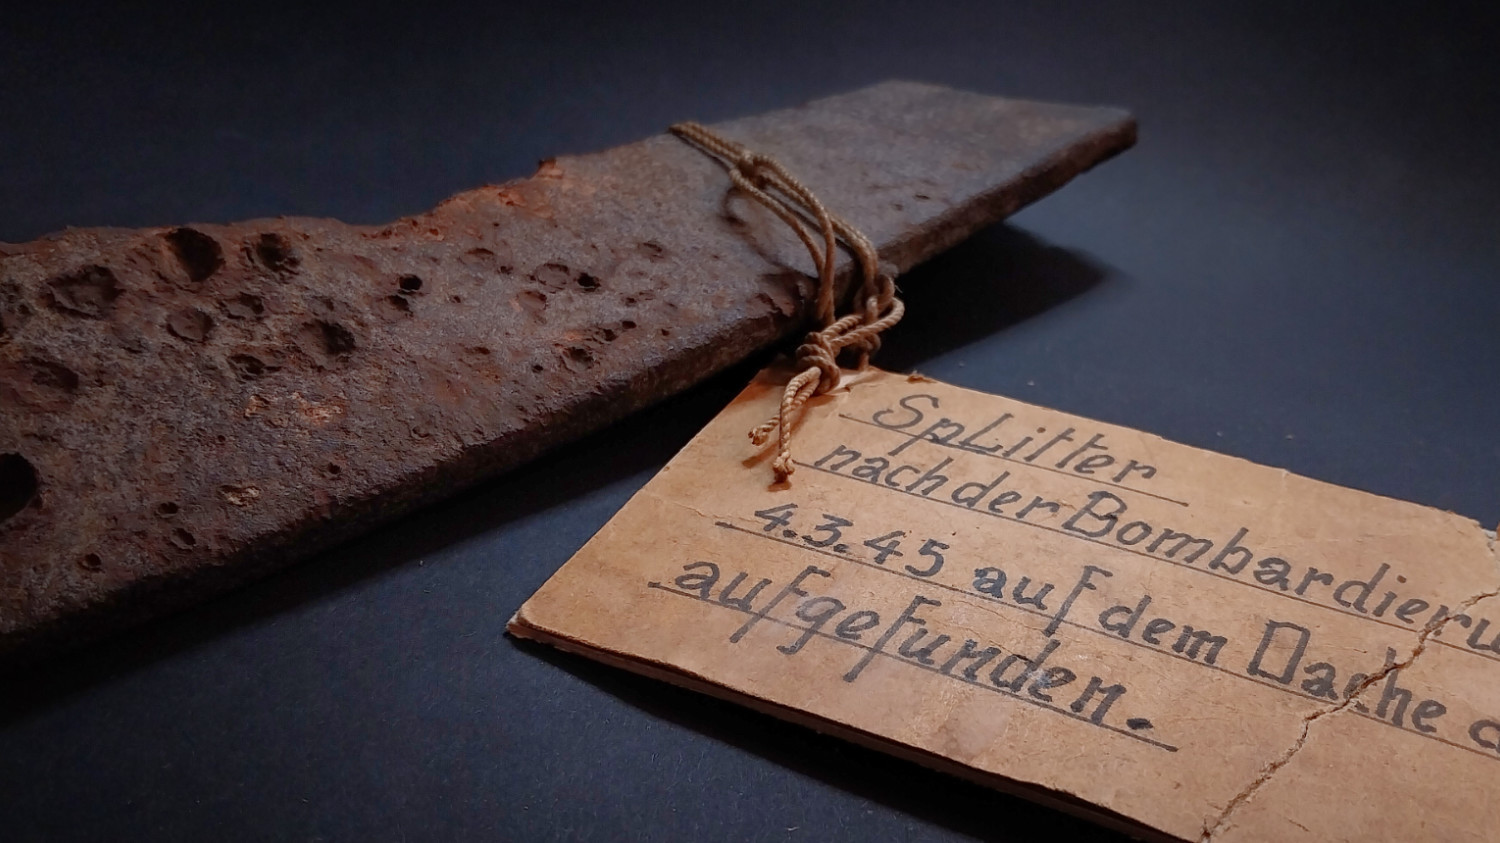 Splitter
nach der Bombardieru
4.3.45 auf dem Dache d
aufgefunden.